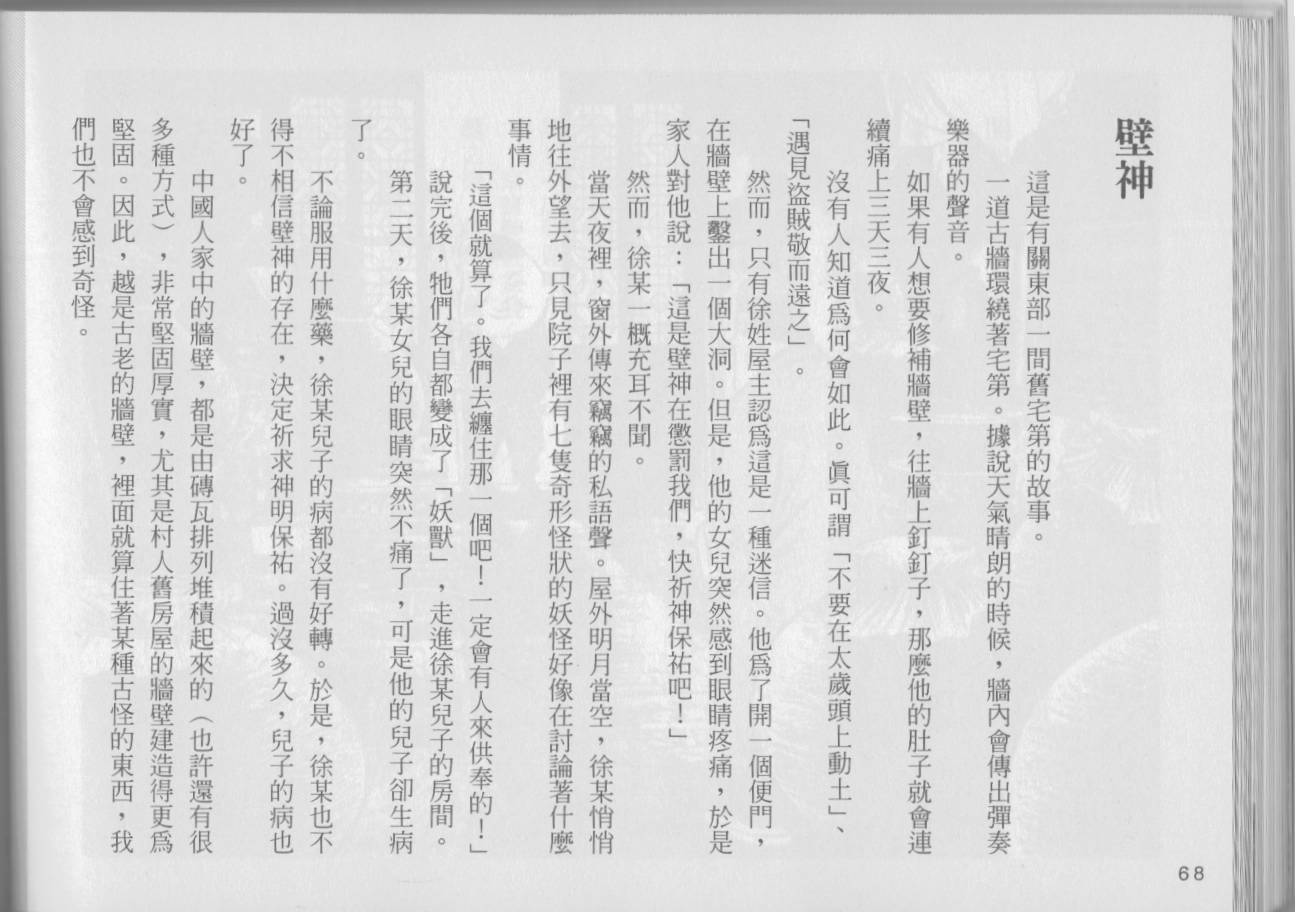 壁神
這是有關東部一間舊宅第的故事。
一道古牆環繞著宅第。據說天氣晴朗的時候，牆內會傳出彈奏
樂器的聲音。
如果有人想要修補牆壁，往牆上釘釘子，那麼他的肚子就會連
續痛上三天三夜。
沒有人知道爲何會如此。眞可謂「不要在太歲頭上動土」、
「遇見盜賊敬而遠之」。
然而，只有徐姓屋主認爲這是一種迷信。他爲了開一個便門，
在牆壁上鑿出一個大洞。但是，他的女兒突然感到眼睛疼痛，於是
家人對他說：「這是壁神在懲罰我們，快祈神保祐吧！」
然而，徐某一概充耳不聞。
當天夜裡，窗外傳來竊竊的私語聲。屋外明月當空，徐某悄悄
地往外望去，只見院子裡有七隻奇形怪狀的妖怪好像在討論著什麼
事情。
「這個就算了。我們去纏住那一個吧！一定會有人來供奉的！」
說完後，牠們各自都變成了「妖獸」，走進徐某兒子的房間。
第二天，徐某女兒的眼睛突然不痛了，可是他的兒子卻生病
了。
不論服用什麼藥，徐某兒子的病都沒有好轉。於是，徐某也不
得不相信壁神的存在，決定祈求神明保祐。過沒多久，兒子的病也
好了。
中國人家中的牆壁，都是由磚瓦排列堆積起來的（也許還有很
多種方式），非常堅固厚實，尤其是村人舊房屋的牆壁建造得更爲
堅固。因此，越是古老的牆壁，裡面就算住著某種古怪的東西，我
們也不會感到奇怪。
68